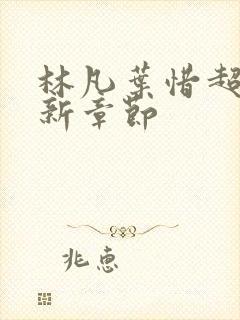 林凡葉惜超
新章節
兆惠